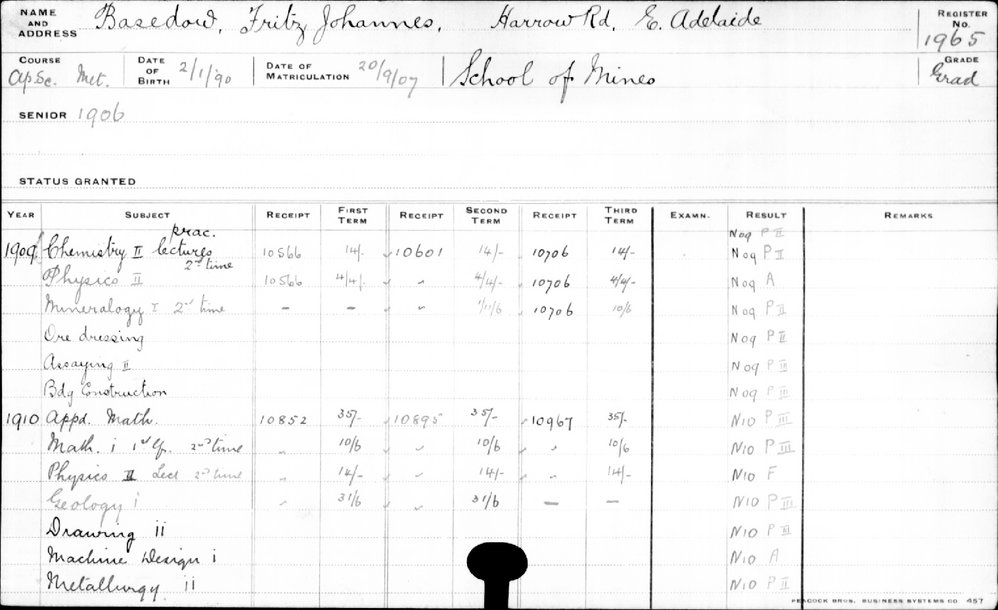 NAME AND ADDRESS Basedow, Fritz Johannes, Harrow Rd, E. Adelaide REGISTER No. 1965
COURSE Ap Sc. Met. DATE OF BIRTH 2/1/90 DATE OF MATRICULATION 20/9/07 School of Mines GRADE Grad
SENIOR 1906
STATUS GRANTED
YEAR SUBJECT RECEIPT FIRST TERM RECEIPT SECOND TERM RECEIPT THIRD TERM EXAMN. RESULT REMARKS
prac. N09 P II
1909 Chemistry II lectures 10566 14/- 10601 14/- 10706 14/- N09 P I
2nd time
Physics II 10566 4/4/- " 4/4/- 10706 4/4/- N09 A
Mineralogy I 2nd time - - " 1/11/6 10706 10/6 N09 P II
Ore dressing N09 P II
Assaying II N09 P III
Bdg Construction N09 P III
1910 Appd. Math. 10852 35/- 10895 35/- 10967 35/- N10 P III
Math. i 1st yr. 2nd time " 10/6 " 10/6 " 10/6 N10 P III
Physics II Lect 2nd time " 14/- " 14/- " 14/- N10 F
Geology i " 31/6 " 31/6 — — N10 P III
Drawing ii N10 P III
Machine Design i N10 A
Metallurgy ii N10 P II
PEACOCK BROS. BUSINESS SYSTEMS CO 457